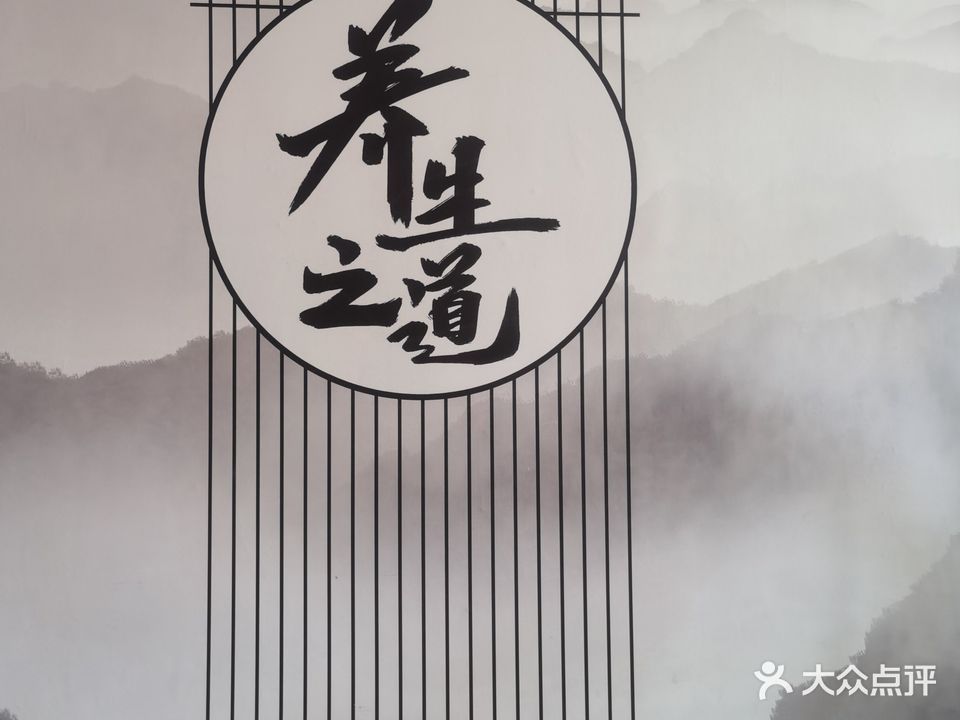 养生
之道
大众点评